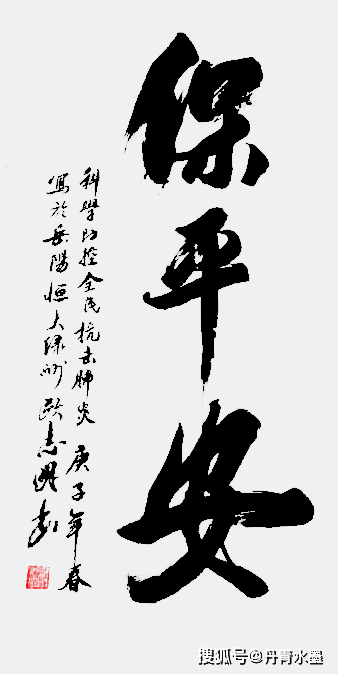 保平安
科學防控全民抗击肺炎 庚子年春
寫於岳陽恒大绿洲 欧志國書
搜狐号@丹青水墨